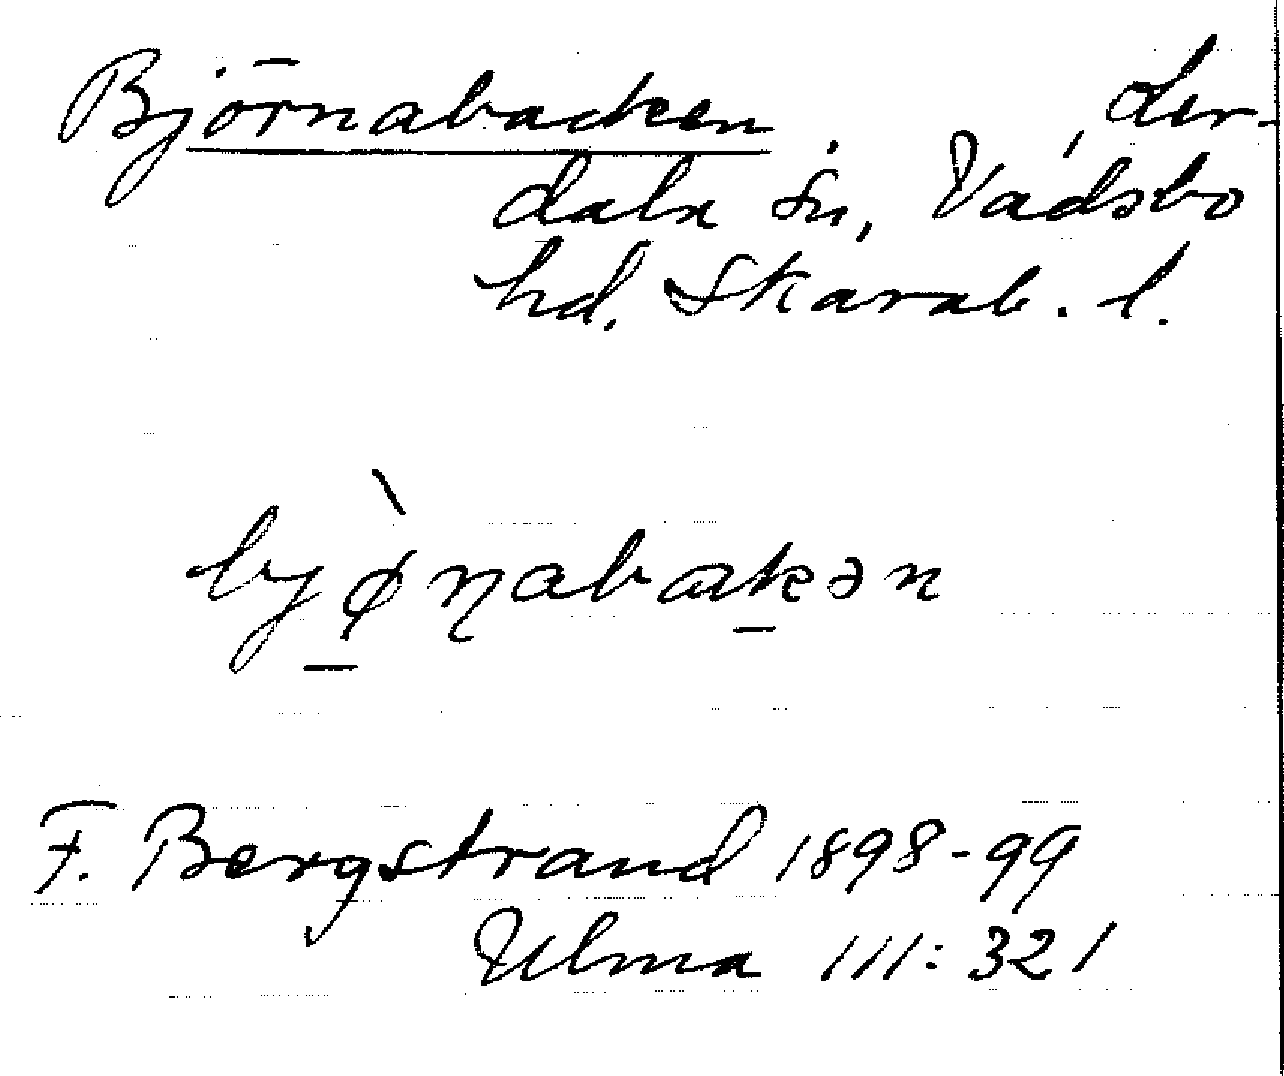 Björnabacken, Ler-
dala sn, Vadsbo
hd. Skarab. l.
bjø̀ɳabakən
F. Bergstrand 1898-99
Ulma 111:321